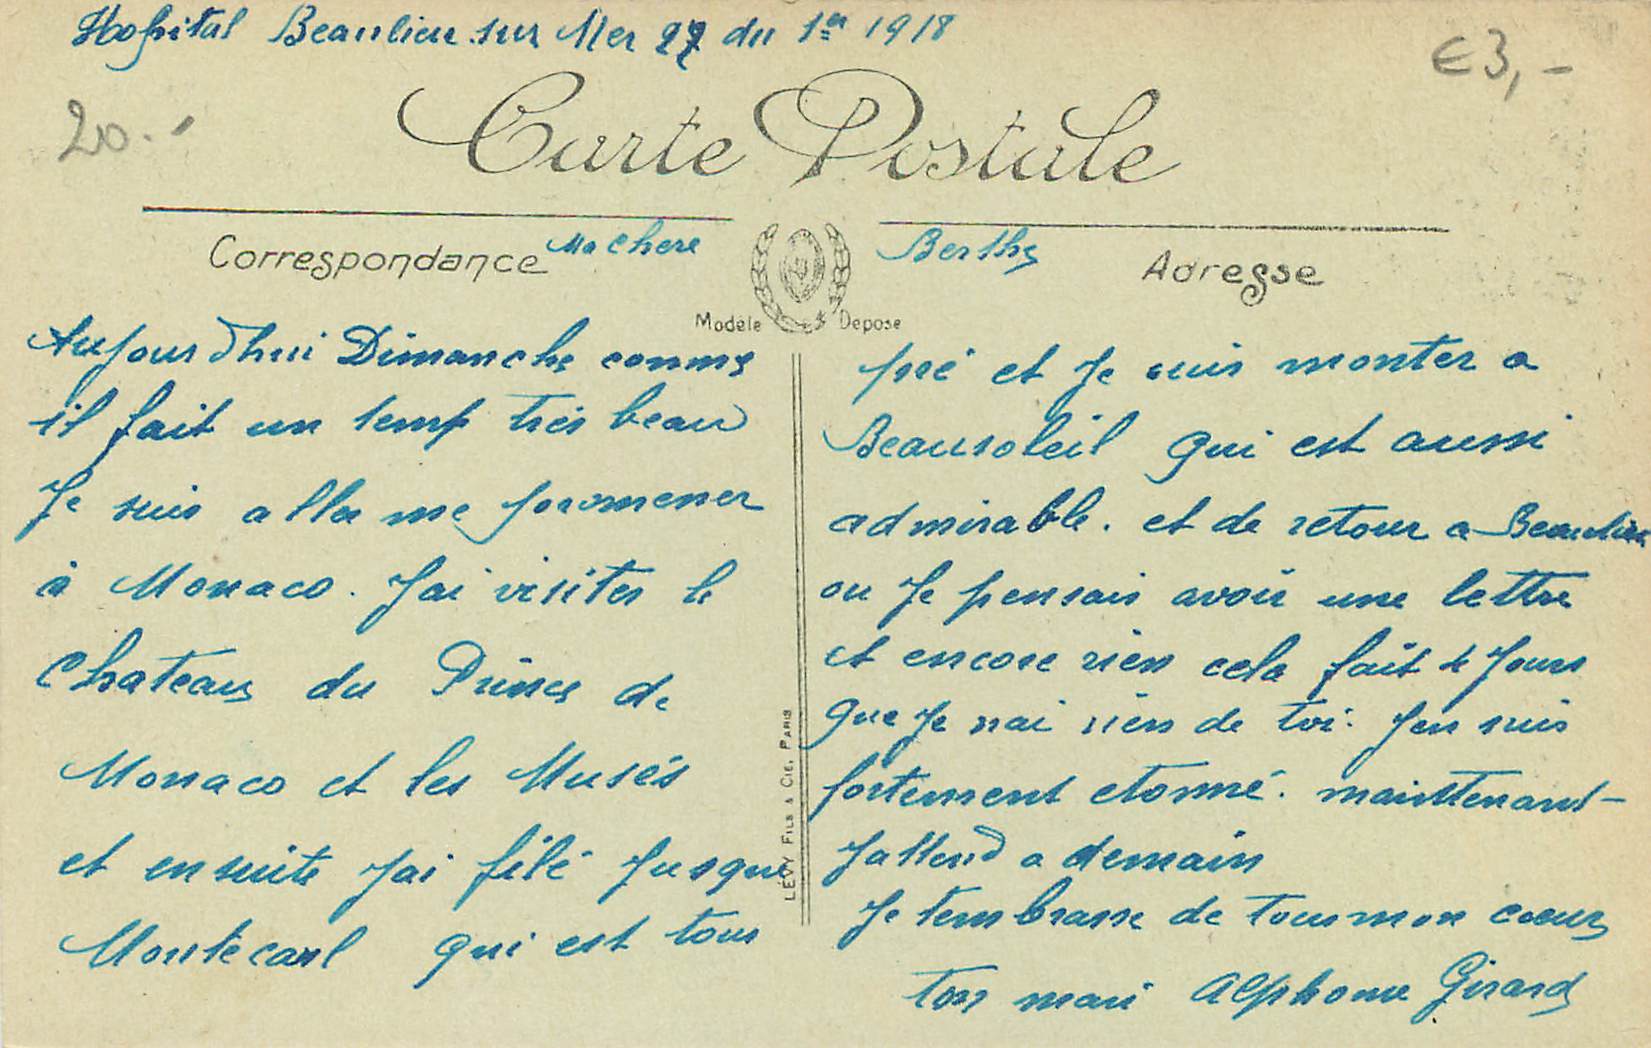 Hopital Beaulieu sur Mer 27 du 1er 1918
€3,-
20.-
Carte Postale
Correspondance
Ma Chere Berthe
Adresse
Modèle Déposé
Aujourdhui Dimanche comme
il fait un temp très beau
Je suis aller me promener
à Monaco. J'ai visiter le
Chateau du Prince de
Monaco et les Musés
et ensuite Jai filé Jusque
Montécarl qui est tous
pré et Je suis monter a
Beausoleil qui est aussi
admirable. et de retour a Beaulieu
ou Je pensais avoir une lettre
et encore rien cela fait 4 Jours
que Je nai rien de toi. Jen suis
fortement etonné. maintenant
Jattend a demain
Je tembrasse de tous mon coeur
ton mari Alphonse Girard
LÉVY FILS & CIE, PARIS